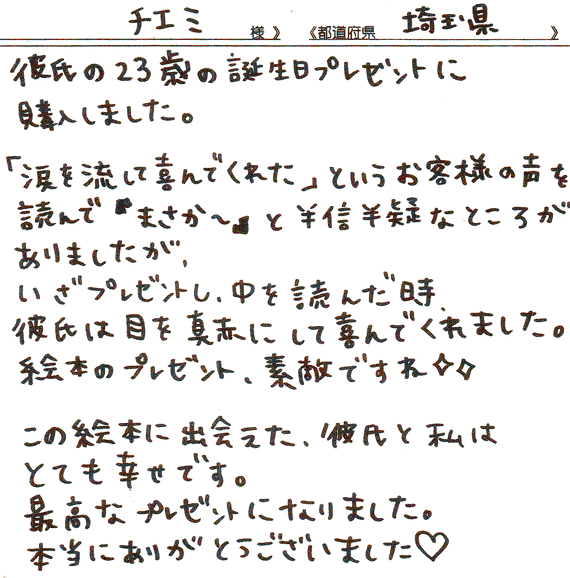 チエミ 様》 《都道府県 埼玉県 》
彼氏の23歳の誕生日プレゼントに
購入しました。
「涙を流して喜んでくれた」というお客様の声を
読んで『まさか〜』と半信半疑なところが
ありましたが、
いざプレゼントし、中を読んだ時、
彼氏は目を真赤にして喜んでくれました。
絵本のプレゼント、素敵ですね✧✧
この絵本に出会えた、彼氏と私は
とても幸せです。
最高なプレゼントになりました。
本当にありがとうございました♡